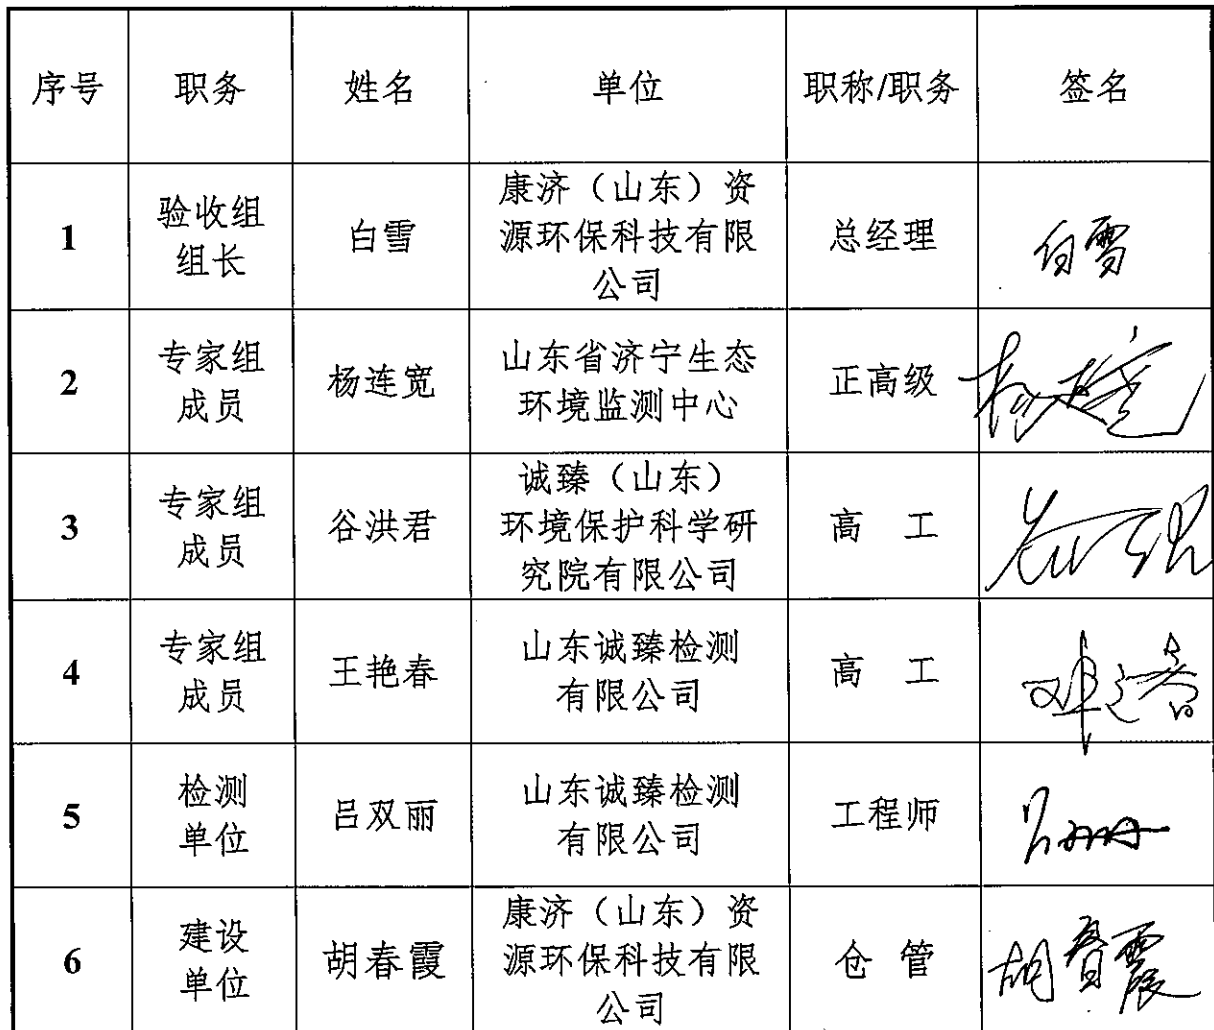 序号 职务 姓名 单位 职称/职务 签名
1 验收组组长 白雪 康济（山东）资源环保科技有限公司 总经理 白雪
2 专家组成员 杨连宽 山东省济宁生态环境监测中心 正高级
3 专家组成员 谷洪君 诚臻（山东）环境保护科学研究院有限公司 高 工
4 专家组成员 王艳春 山东诚臻检测有限公司 高 工
5 检测单位 吕双丽 山东诚臻检测有限公司 工程师
6 建设单位 胡春霞 康济（山东）资源环保科技有限公司 仓 管 胡春霞